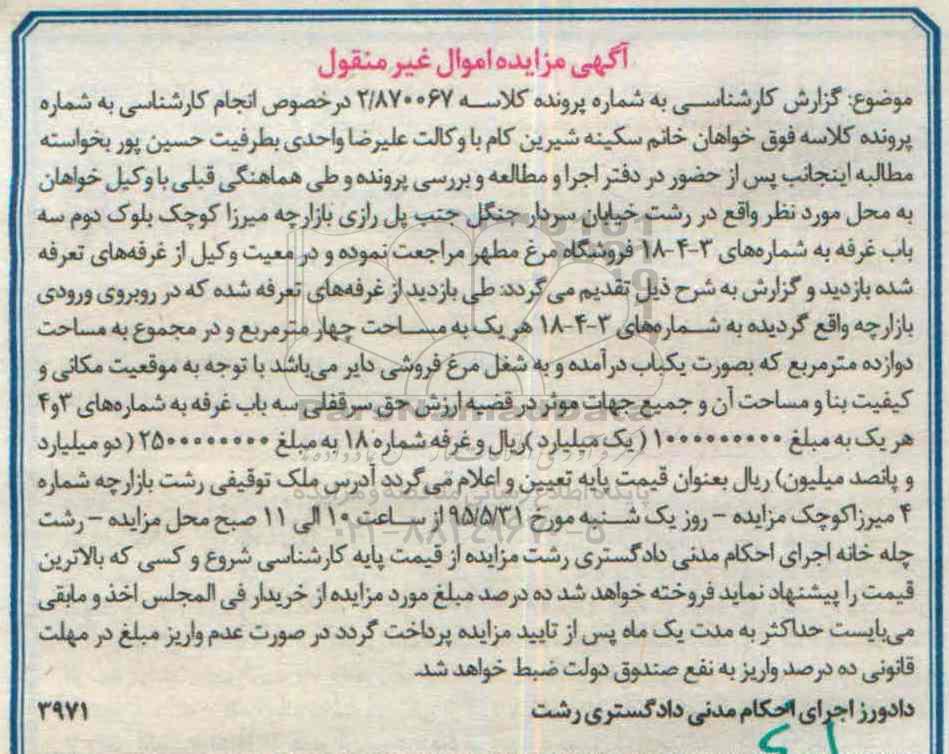 آگهی مزایده اموال غیر منقول
موضوع: گزارش کارشناسی به شماره پرونده کلاسه ۲/۸۷۰۰۶۷ درخصوص انجام کارشناسی به شماره
پرونده کلاسه فوق خواهان خانم سکینه شیرین کام با وکالت علیرضا واحدی بطرفیت حسین پور بخواسته
مطالبه اینجانب پس از حضور در دفتر اجرا و مطالعه و بررسی پرونده و طی هماهنگی قبلی با وکیل خواهان
به محل مورد نظر واقع در رشت خیابان سردار جنگل جنب پل رازی بازارچه میرزا کوچک بلوک دوم سه
باب غرفه به شماره‌های ۳-۴-۱۸ فروشگاه مرغ مطهر مراجعت نموده و در معیت وکیل از غرفه‌های تعرفه
شده بازدید و گزارش به شرح ذیل تقدیم می گردد: طی بازدید از غرفه‌های تعرفه شده که در روبروی ورودی
بازارچه واقع گردیده به شماره‌های ۳-۴-۱۸ هر یک به مساحت چهار مترمربع و در مجموع به مساحت
دوازده مترمربع که بصورت یکباب درآمده و به شغل مرغ فروشی دایر می‌باشد با توجه به موقعیت مکانی و
کیفیت بنا و مساحت آن و جمیع جهات موثر در قضیه ارزش حق سرقفلی سه باب غرفه به شماره‌های ۳و۴
هر یک به مبلغ ۱۰۰۰۰۰۰۰۰۰ (یک میلیارد) ریال و غرفه شماره ۱۸ به مبلغ ۲۵۰۰۰۰۰۰۰۰ (دو میلیارد
و پانصد میلیون) ریال بعنوان قیمت پایه تعیین و اعلام می گردد آدرس ملک توقیفی رشت بازارچه شماره
۴ میرزاکوچک مزایده – روز یک شنبه مورخ ۹۵/۵/۳۱ از ساعت ۱۰ الی ۱۱ صبح محل مزایده – رشت
چله خانه اجرای احکام مدنی دادگستری رشت مزایده از قیمت پایه کارشناسی شروع و کسی که بالاترین
قیمت را پیشنهاد نماید فروخته خواهد شد ده درصد مبلغ مورد مزایده از خریدار فی المجلس اخذ و مابقی
می‌بایست حداکثر به مدت یک ماه پس از تایید مزایده پرداخت گردد در صورت عدم واریز مبلغ در مهلت
قانونی ده درصد واریز به نفع صندوق دولت ضبط خواهد شد.
دادورز اجرای احکام مدنی دادگستری رشت
۳۹۷۱